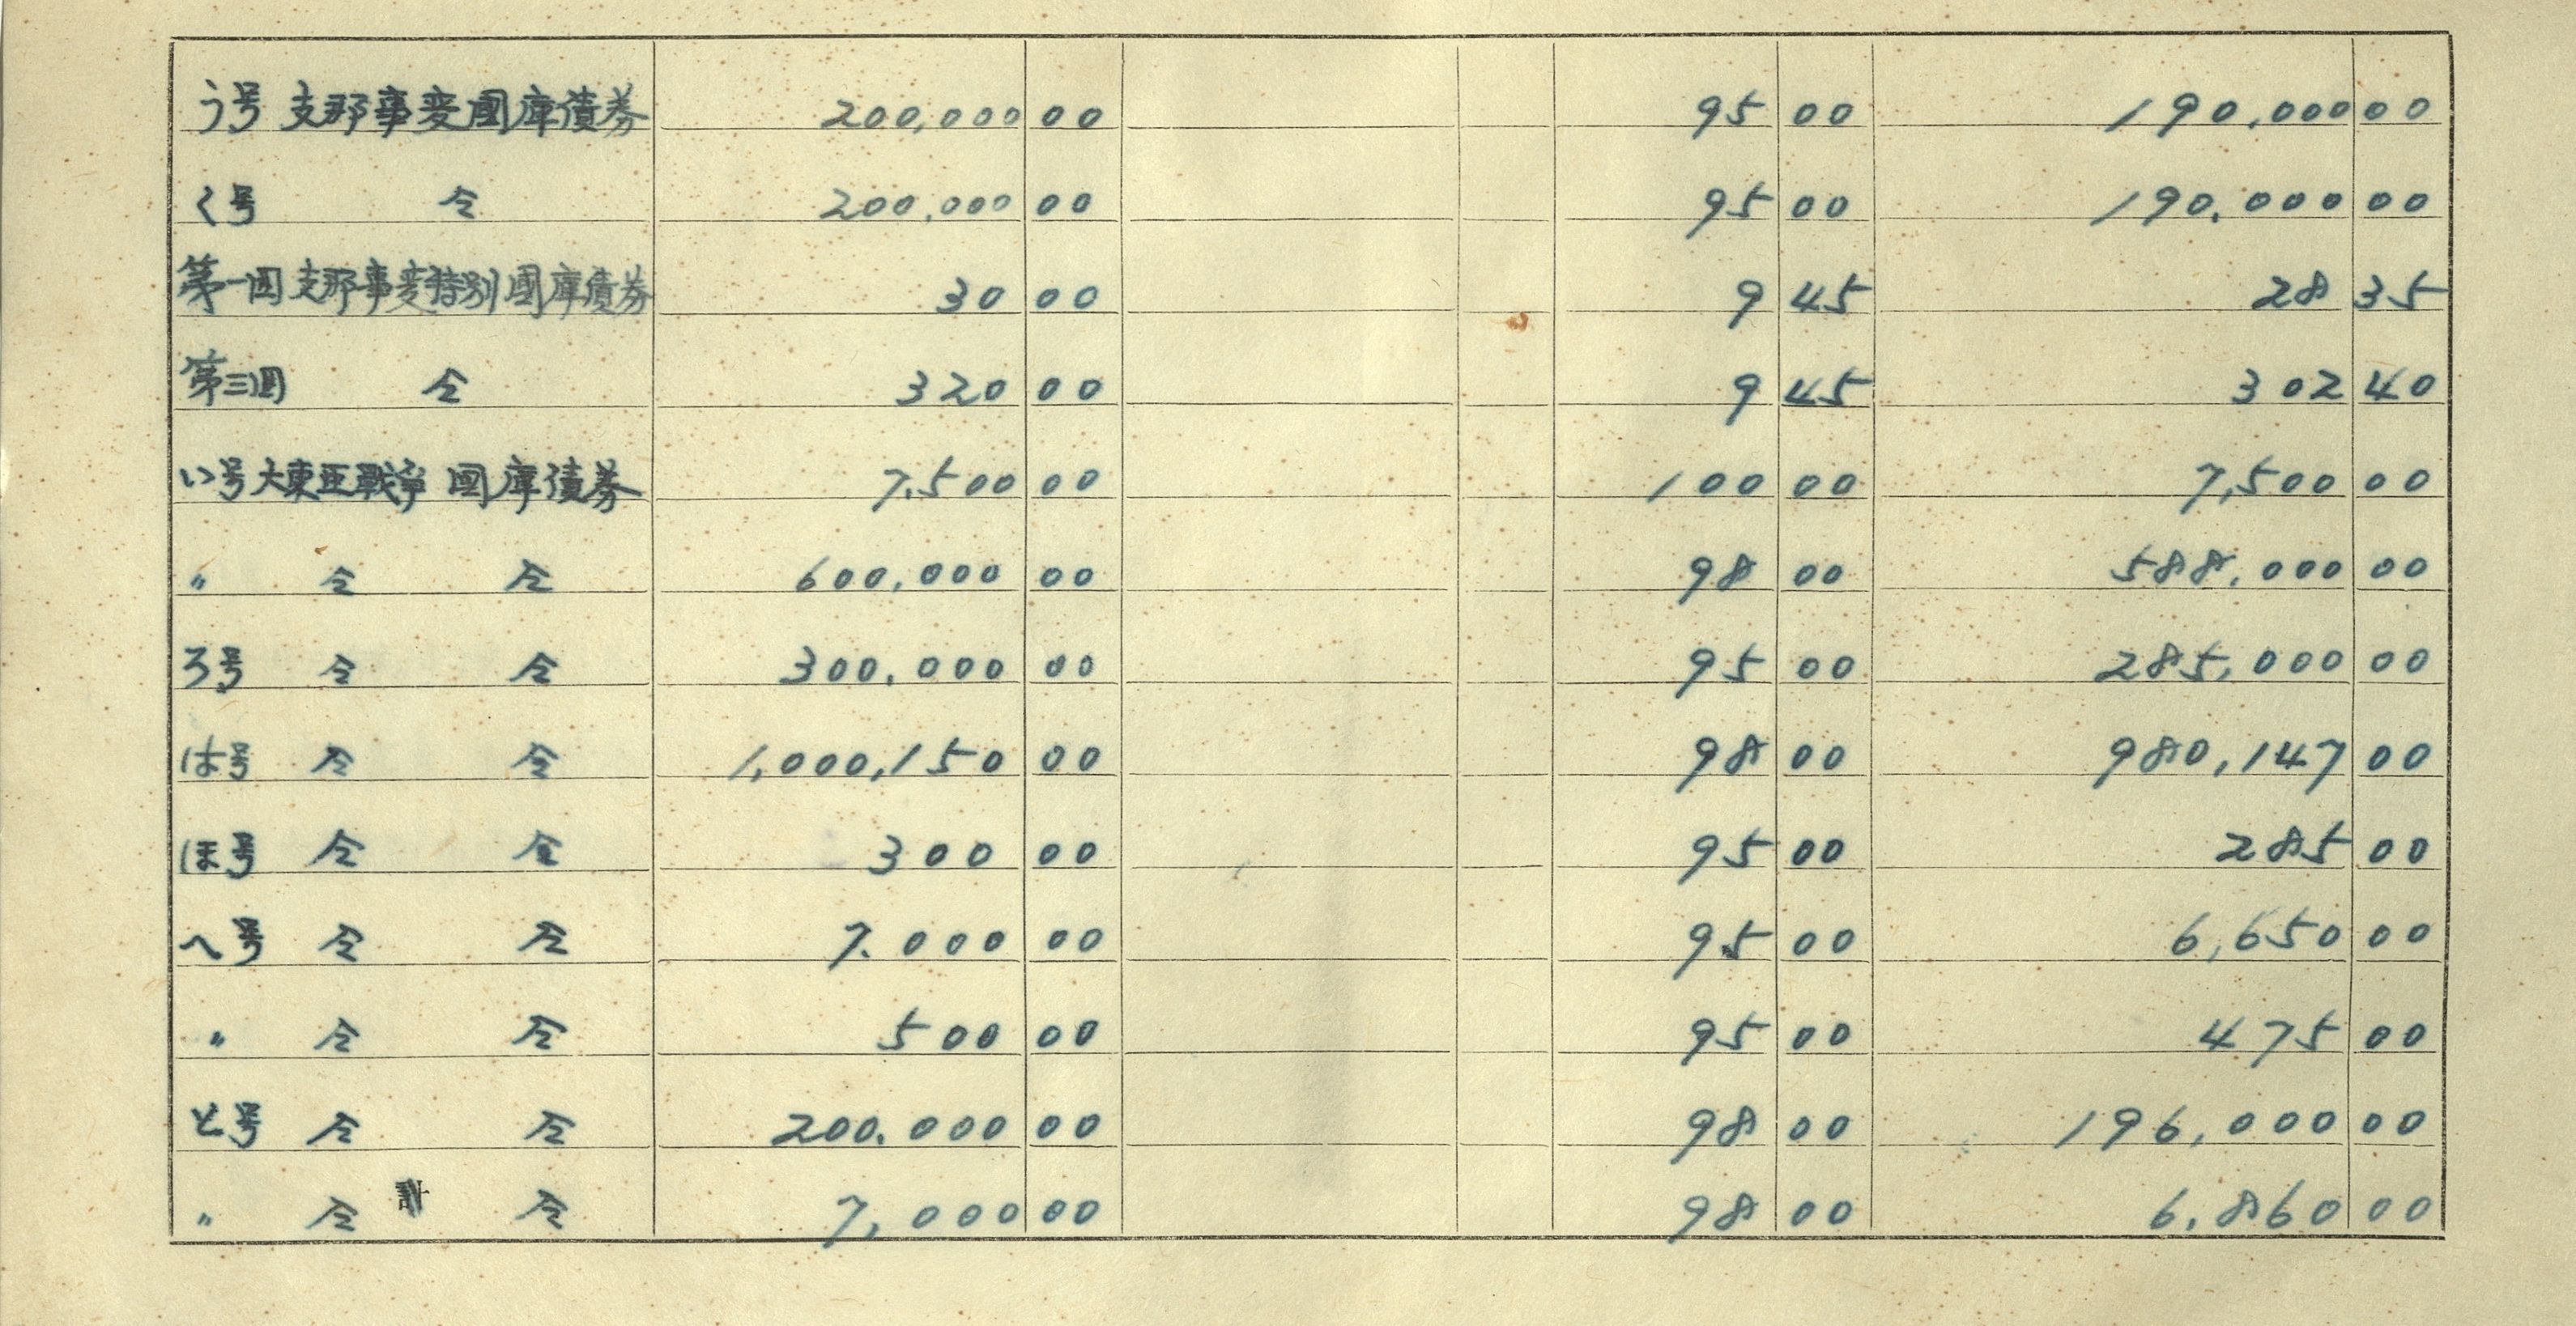 う号 支那事変國庫債券 200,000 00 95 00 190,000 00
く号 仝 200,000 00 95 00 190,000 00
第一回支那事変特別國庫債券 30 00 9 45 28 35
第三回 仝 320 00 9 45 302 40
い号大東亜戦争 國庫債券 7,500 00 100 00 7,500 00
〃 仝 仝 600,000 00 98 00 588,000 00
ろ号 仝 仝 300,000 00 95 00 285,000 00
は号 仝 仝 1,000,150 00 98 00 980,147 00
ほ号 仝 仝 300 00 95 00 285 00
へ号 仝 仝 7,000 00 95 00 6,650 00
〃 仝 仝 500 00 95 00 475 00
と号 仝 仝 200,000 00 98 00 196,000 00
〃 仝 計 仝 7,000 00 98 00 6,860 00